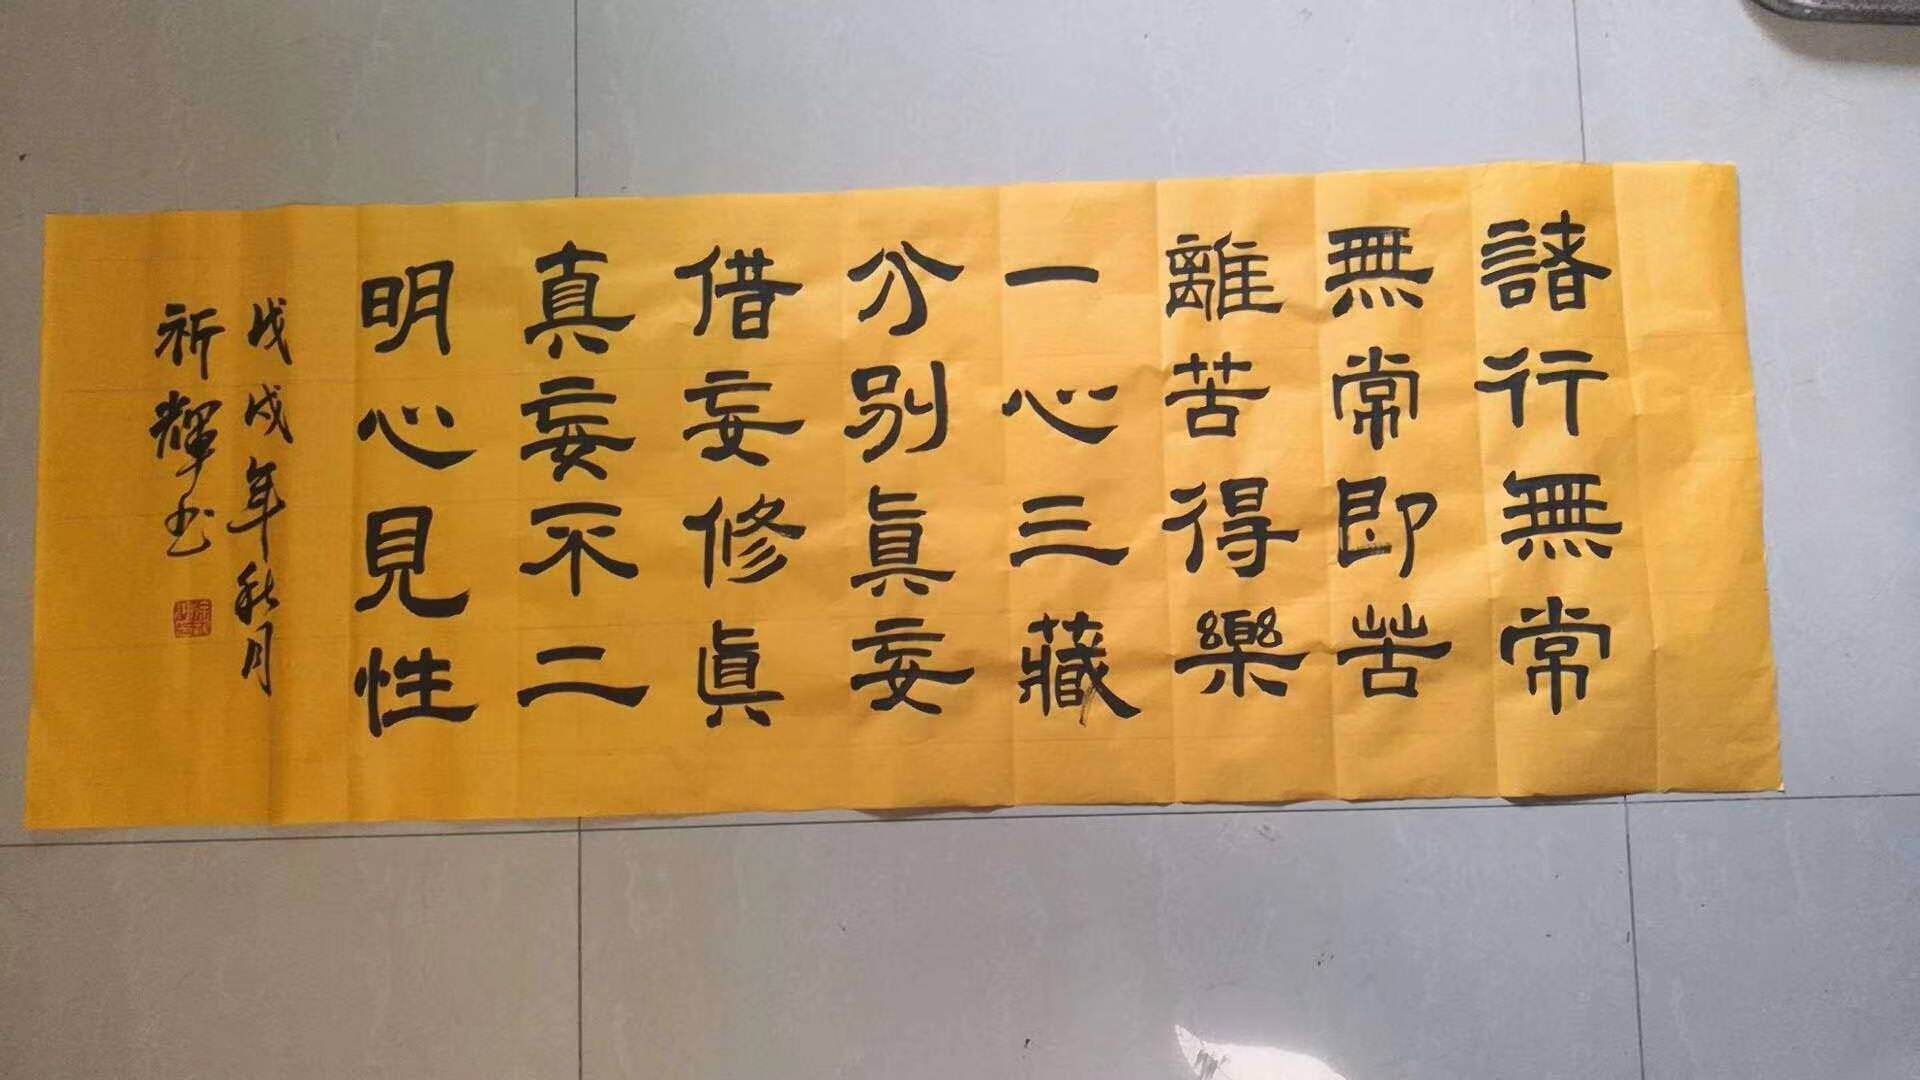 諸行無常
無常即苦
離苦得樂
一心三藏
分别眞妄
借妄修眞
真妄不二
明心見性
戊戌年秋月
祈輝书